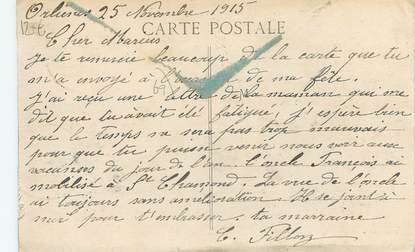 Orliénas 25 Novembre 1915
CARTE POSTALE
Cher Marcus
Je te remercie beaucoup de la carte que tu
m'a envoyé à de ma fête.
J'ai reçu une lettre de la maman qui me
dit que tu avait été fatigué, j'espère bien
que le temps ne sera pas trop mauvais
pour que tu puisse venir nous voir aux
vacances du jour de l'an. L'oncle François ai
mobilisé à St Chamond. La vue de l'oncle
ai toujours sans amélioration. Il se joint à
moi pour t'embrasser. ta marraine
C. Fillon